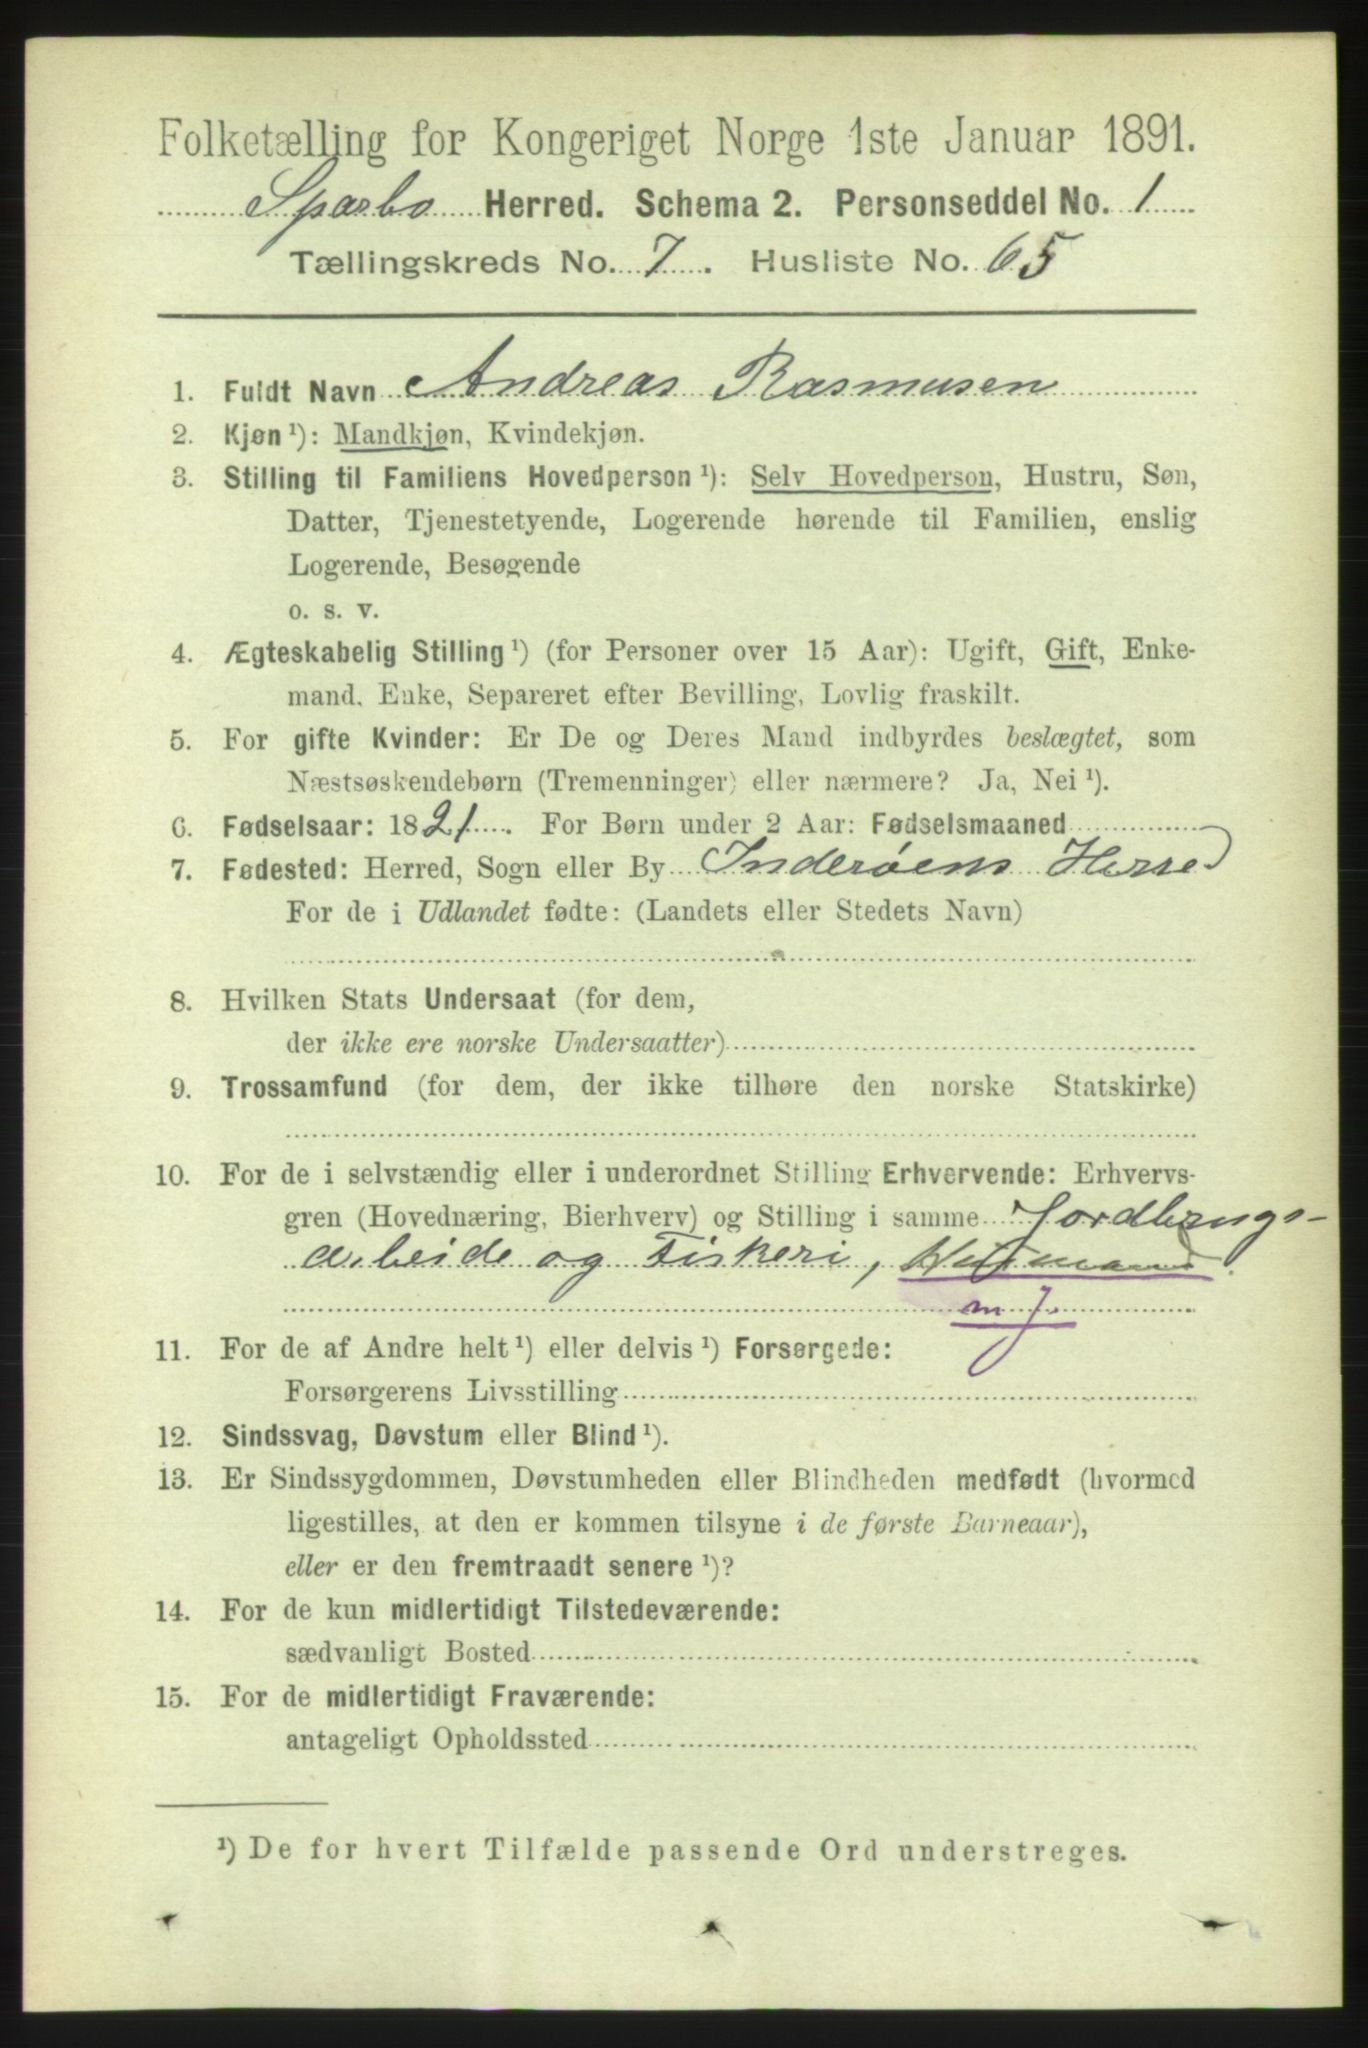 Folketælling for Kongeriget Norge 1ste Januar 1891.
Sparbo Herred. Schema 2. Personseddel No. 1
Tællingskreds No. 7. Husliste No. 65
1. Fuldt Navn Andreas Rasmusen
2. Kjøn ¹): Mandkjøn, Kvindekjøn.
3. Stilling til Familiens Hovedperson ¹): Selv Hovedperson, Hustru, Søn,
Datter, Tjenestetyende, Logerende hørende til Familien, enslig
Logerende, Besøgende
o. s. v.
4. Ægteskabelig Stilling ¹) (for Personer over 15 Aar): Ugift, Gift, Enke-
mand, Enke, Separeret efter Bevilling, Lovlig fraskilt.
5. For gifte Kvinder: Er De og Deres Mand indbyrdes beslægtet, som
Næstsøskendebørn (Tremenninger) eller nærmere? Ja, Nei ¹).
6. Fødselsaar: 1821. For Børn under 2 Aar: Fødselsmaaned
7. Fødested: Herred, Sogn eller By Inderøens Herred
For de i Udlandet fødte: (Landets eller Stedets Navn)
8. Hvilken Stats Undersaat (for dem,
der ikke ere norske Undersaatter)
9. Trossamfund (for dem, der ikke tilhøre den norske Statskirke)
10. For de i selvstændig eller i underordnet Stilling Erhvervende: Erhvervs-
gren (Hovednæring, Bierhverv) og Stilling i samme Jordbrugs-
arbeide og Fiskeri, Husmand.
m J.
11. For de af Andre helt ¹) eller delvis ¹) Forsørgede:
Forsørgerens Livsstilling
12. Sindssvag, Døvstum eller Blind ¹).
13. Er Sindssygdommen, Døvstumheden eller Blindheden medfødt (hvormed
ligestilles, at den er kommen tilsyne i de første Barneaar),
eller er den fremtraadt senere ¹)?
14. For de kun midlertidigt Tilstedeværende:
sædvanligt Bosted
15. For de midlertidigt Fraværende:
antageligt Opholdssted
¹) De for hvert Tilfælde passende Ord understreges.